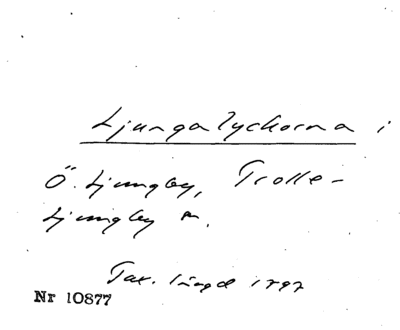 Ljungalyckorna i
Ö. Ljungby, Trolle-
Ljungby sn.
Tax. längd 1797
Nr 10877